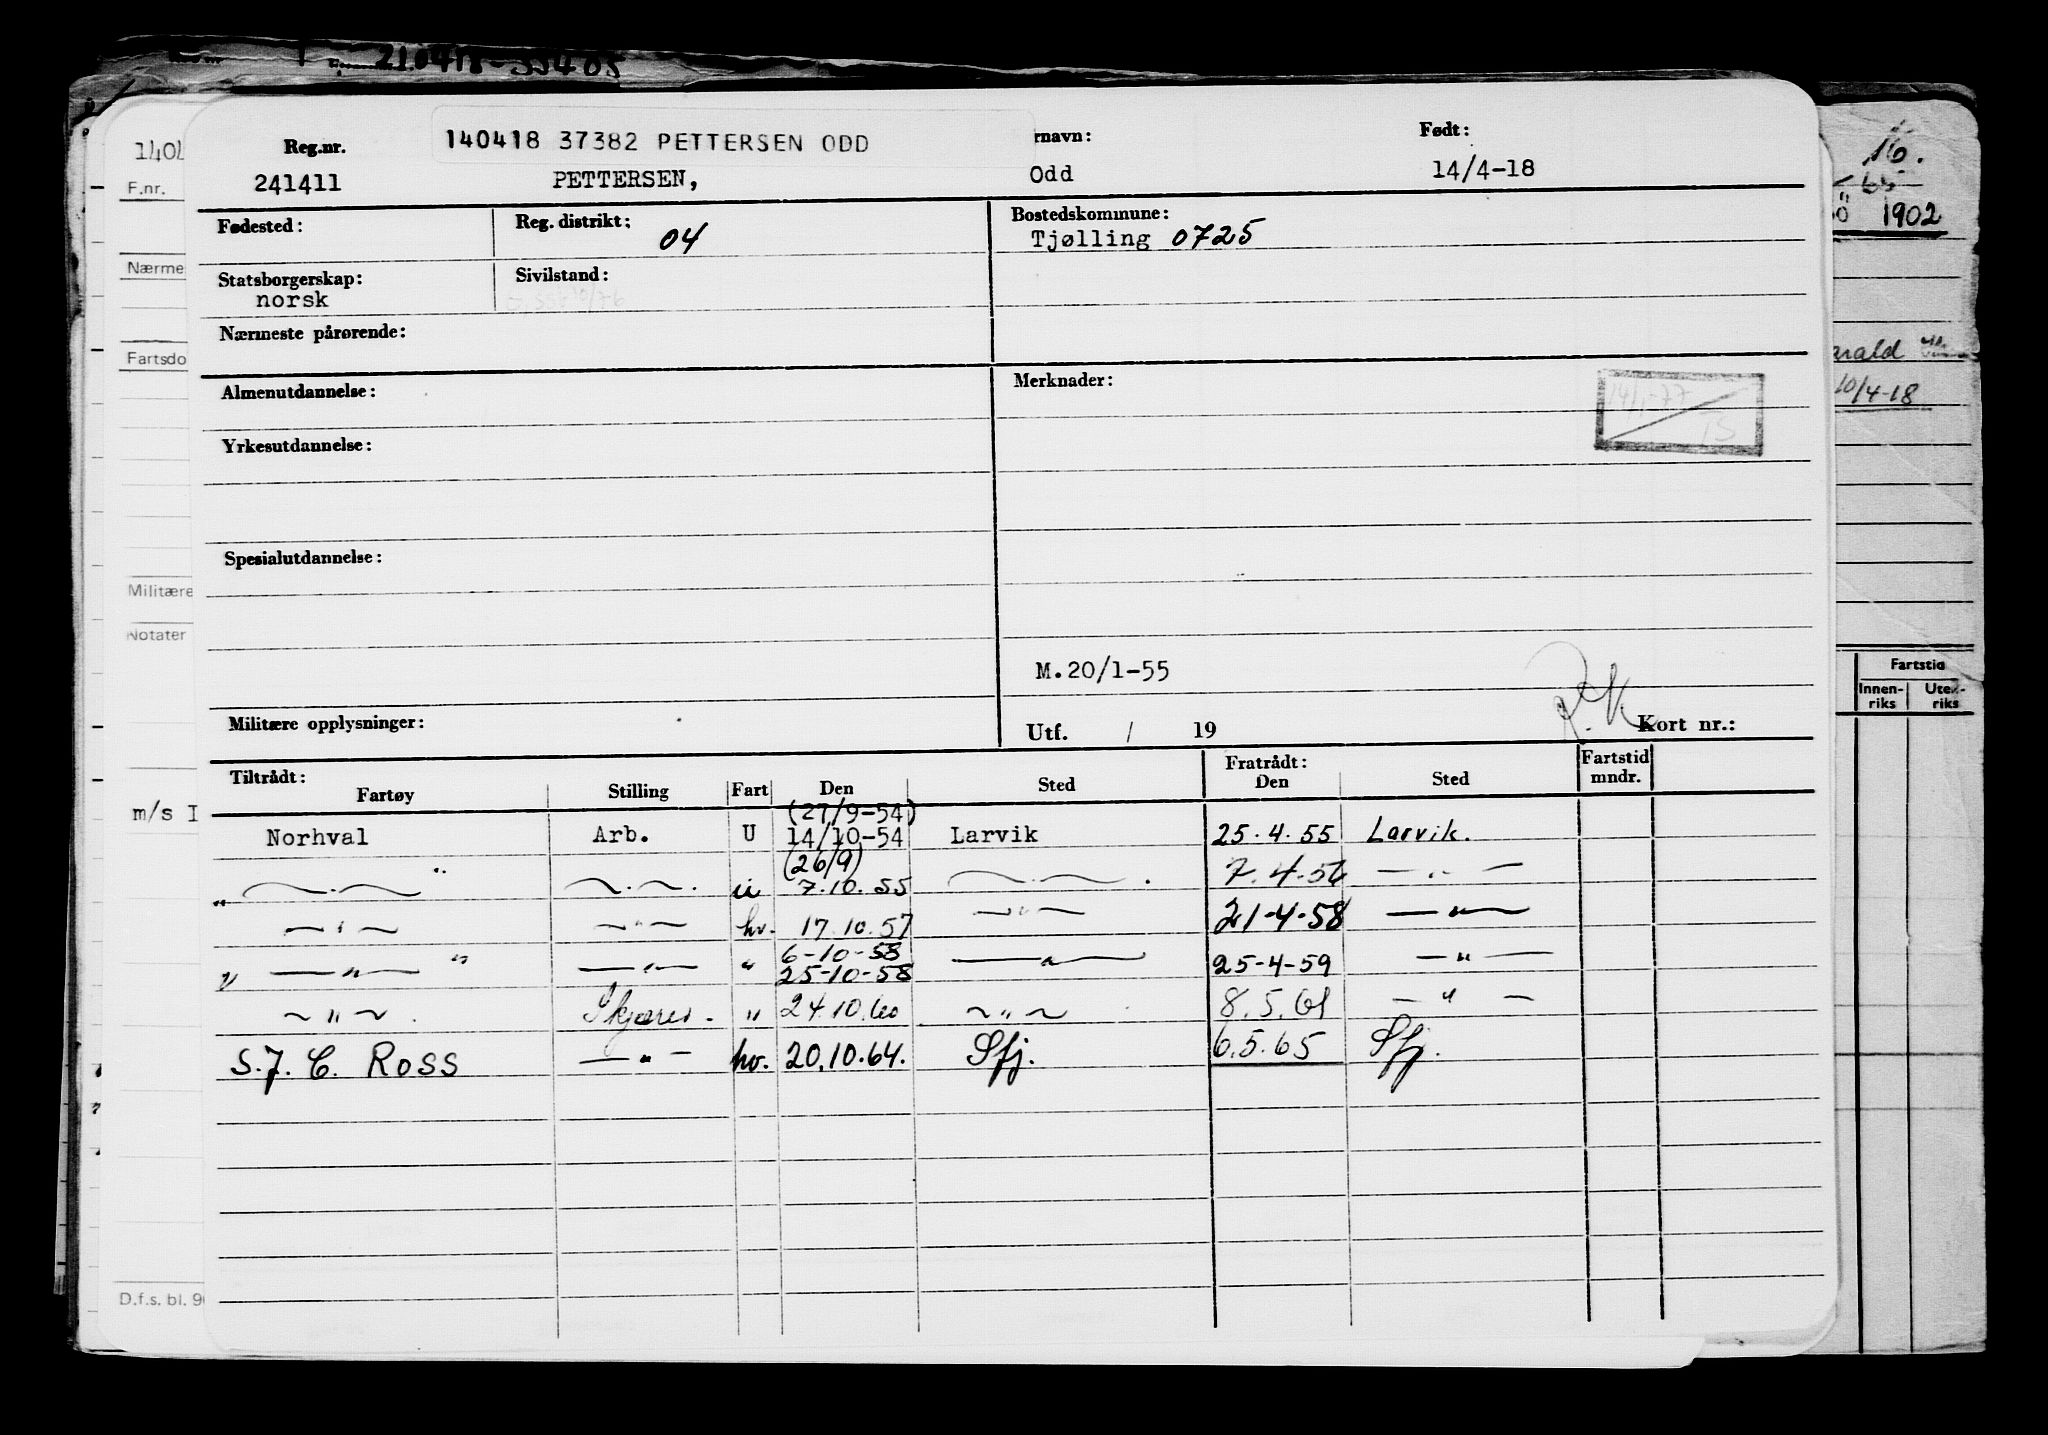 21.0418-
140418 37382 PETTERSEN ODD
Reg.nr. rnavn: Født:
241411 PETTERSEN, Odd 14/4-18
Fødested: Reg. distrikt: 04 Bostedskommune:
Tjølling 0725
Statsborgerskap: Sivilstand:
norsk
Nærmeste pårørende:
Almenutdannelse: Merknader:
14/1-77
15
Yrkesutdannelse:
Spesialutdannelse:
M.20/1-55
Militære opplysninger: Utf. / 19 Kort nr.:
Tiltrådt: Fratrådt: Fartstid
Fartøy Stilling Fart Den Sted Den Sted mndr.
(27/9-54)
Norhval Arb. U 14/10-54 Larvik 25.4.55 Larvik.
(26/9)
„ —.— " —.—. ü 7.10.55 —.—. 7.4.56 — „ —
— " — — " — hv. 17.10.57 — " — 21-4-58 — " —
6-10-58
— " — " — " — " 25-10-58 — " — 25-4-59 — " —
— " — . Skjærer. " 24.10.60 — " — 8.5.61 — " —
S.J. C. ROSS — " — hv. 20.10.64. Sfj. 6.5.65 Sfj.
140
F.nr.
Nærme
Fartsdo
Militære
Notater
m/s I
D.f.s. bl. 9
16.
65
1902
arald
10/4-18
Fartstid
Innen-riks Uten-riks